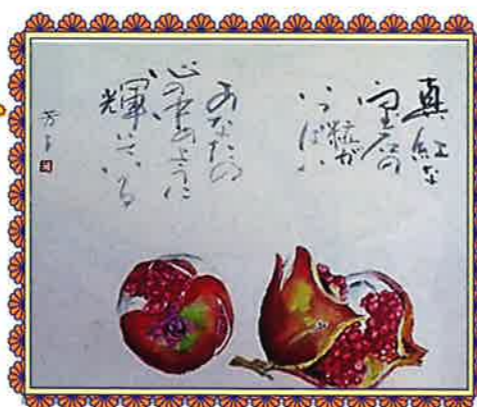 真紅な
宝石の
粒が
いっぱい
あなたの
心の中のように
輝いている